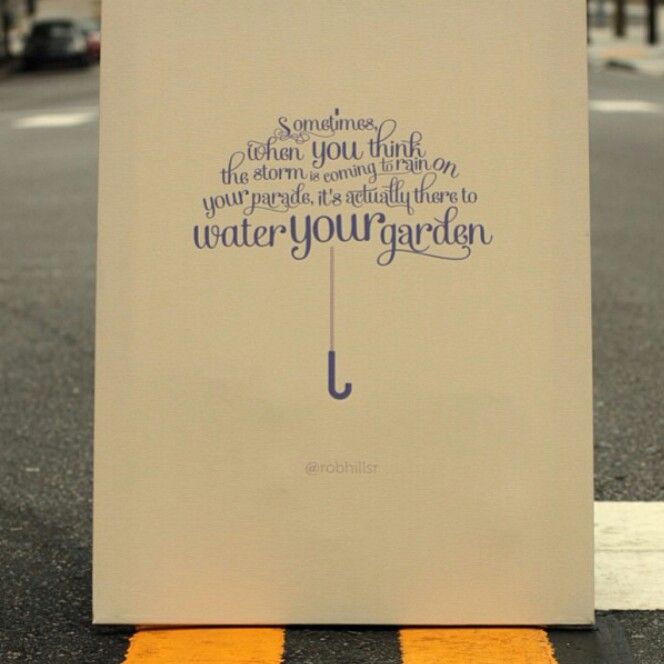 Sometimes,
when you think
the storm is coming to rain on
your parade, it's actually there to
water your garden
@robhillsr